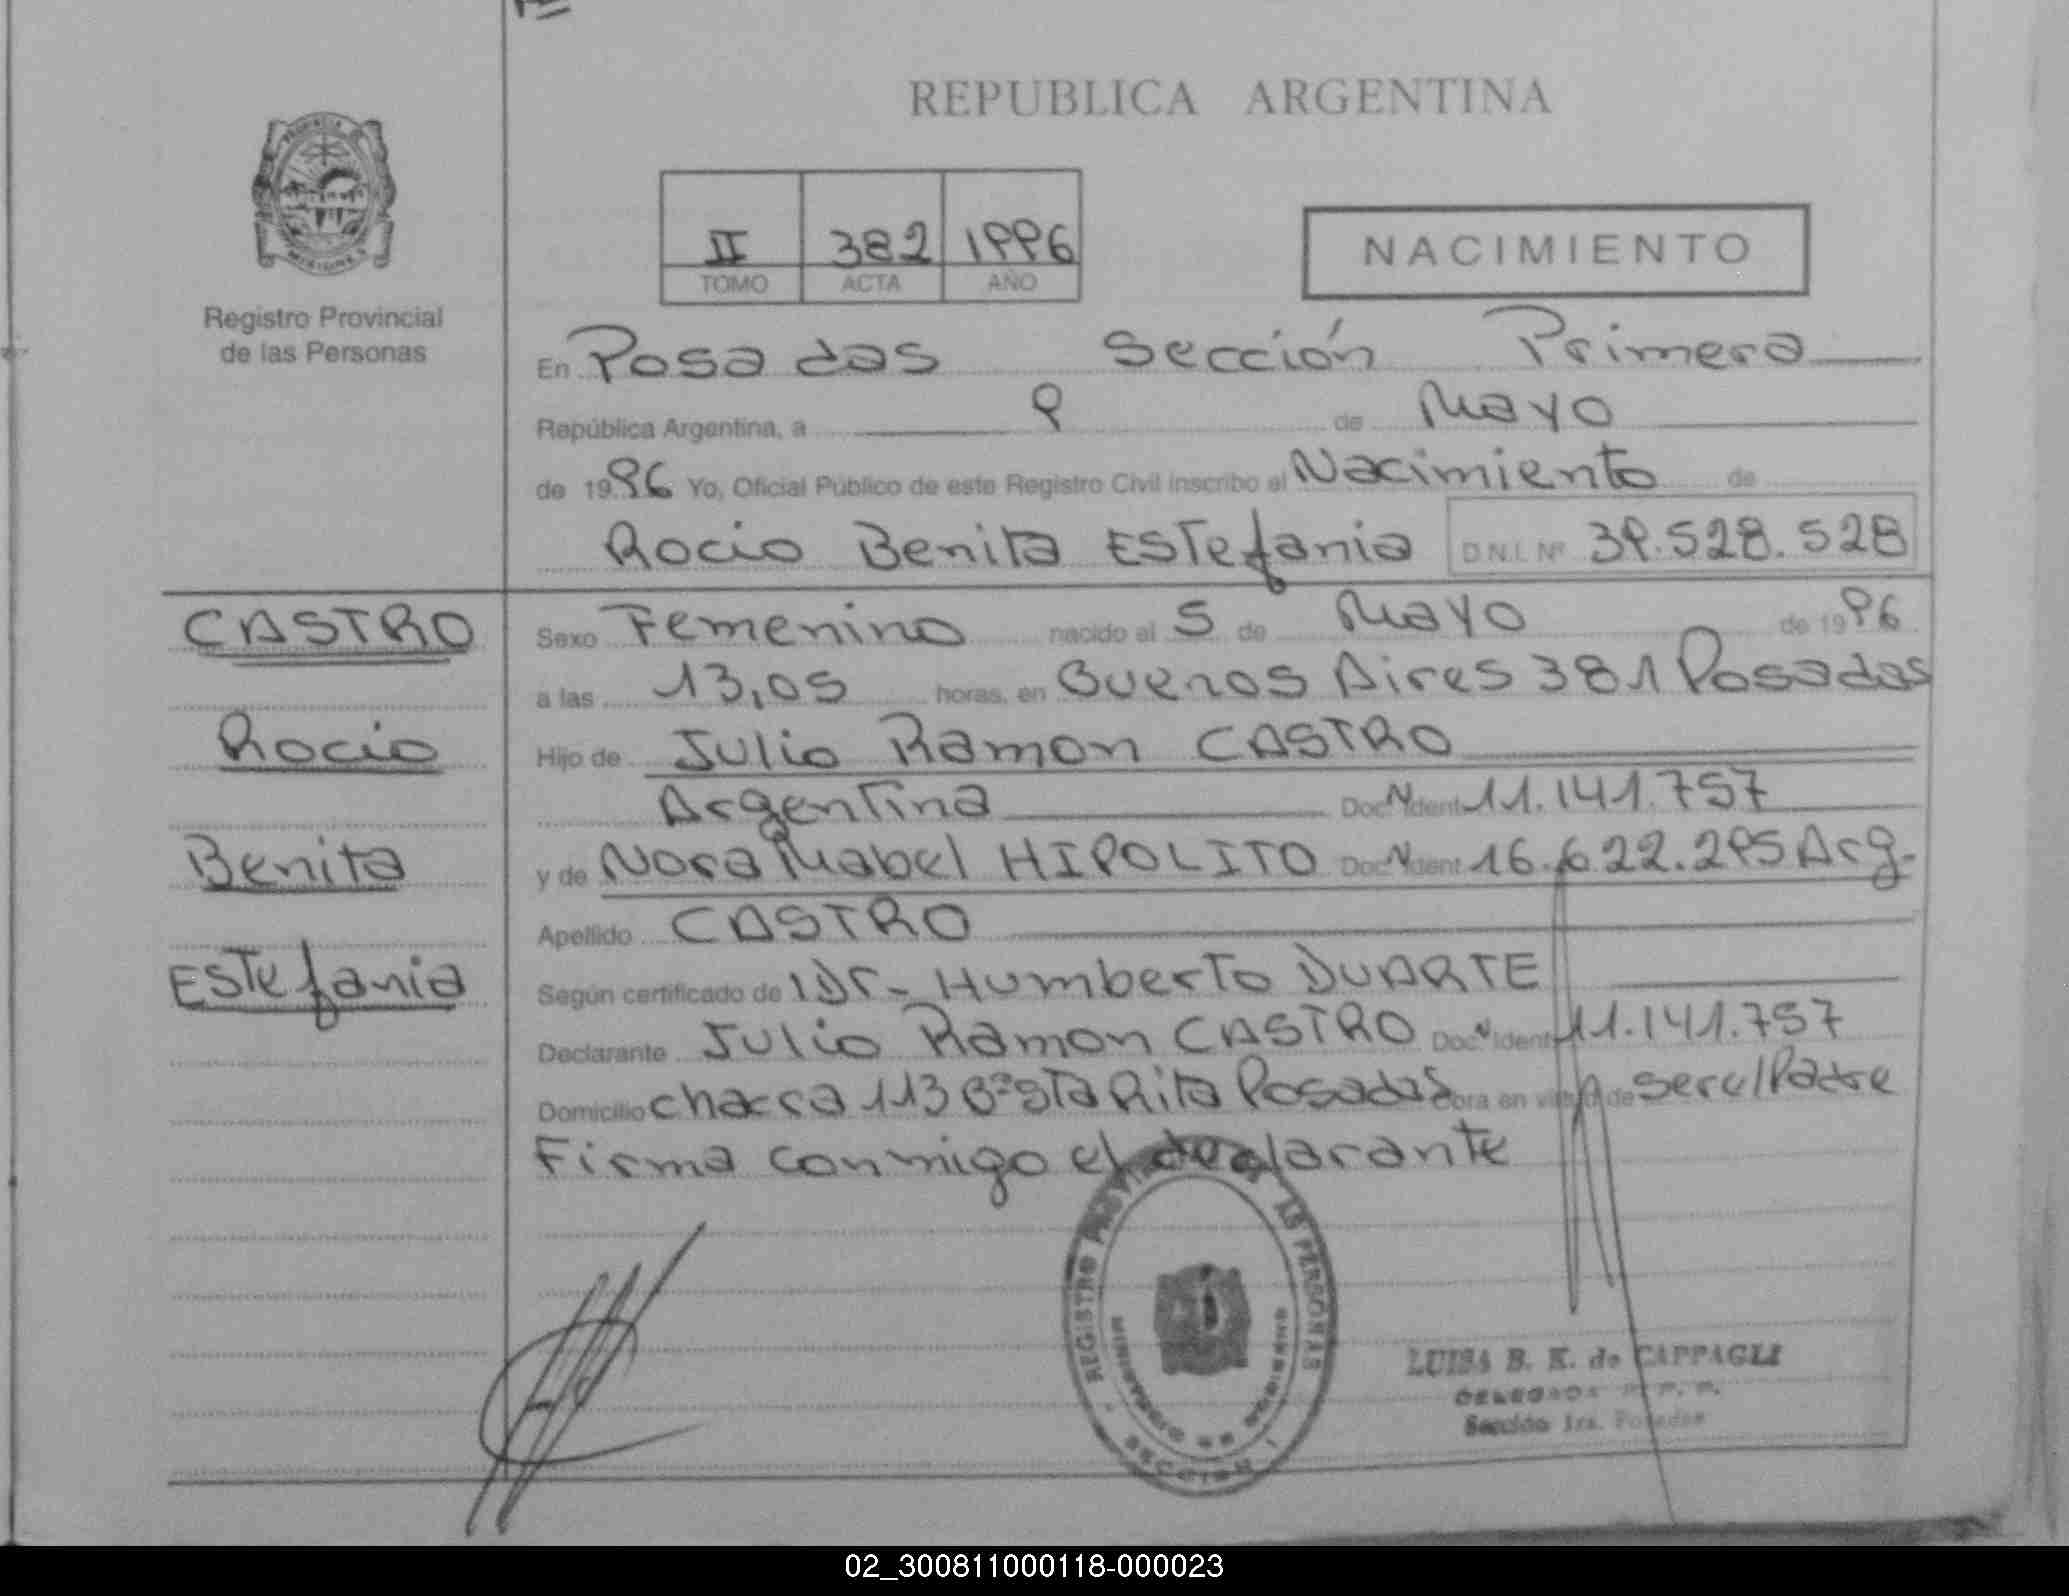 REPUBLICA ARGENTINA
PROVINCIA DE MISIONES
Registro Provincial
de las Personas
II 382 1996
TOMO ACTA AÑO
NACIMIENTO
En Posadas Sección Primera
República Argentina, a 9 de Mayo
de 1996 Yo, Oficial Público de este Registro Civil inscribo el Nacimiento de
Rocio Benita Estefania D.N.I. Nº 39.528.528
CASTRO
Rocio
Benita
Estefania
Sexo Femenino nacido el 5 de Mayo de 1996
a las 13,05 horas, en Buenos Aires 381 Posadas
Hijo de Julio Ramon CASTRO
Argentina Doc N Ident 11.141.757
y de Nora Mabel HIPOLITO Doc N Ident 16.622.295 Arg.
Apellido CASTRO
Según certificado de Dr. Humberto DUARTE
Declarante Julio Ramon CASTRO Doc N Ident 11.141.757
Domicilio chacra 113 Bº Sta Rita Posadas obra en virtud de ser el Padre
Firma conmigo el declarante
REGISTRO PROVINCIAL DE LAS PERSONAS
MINISTERIO DE GOBIERNO
SECCION 1
LUISA B. K. de CAPPAGLI
DELEGADA R. P. P.
Sección 1ra. Posadas
02_300811000118-000023